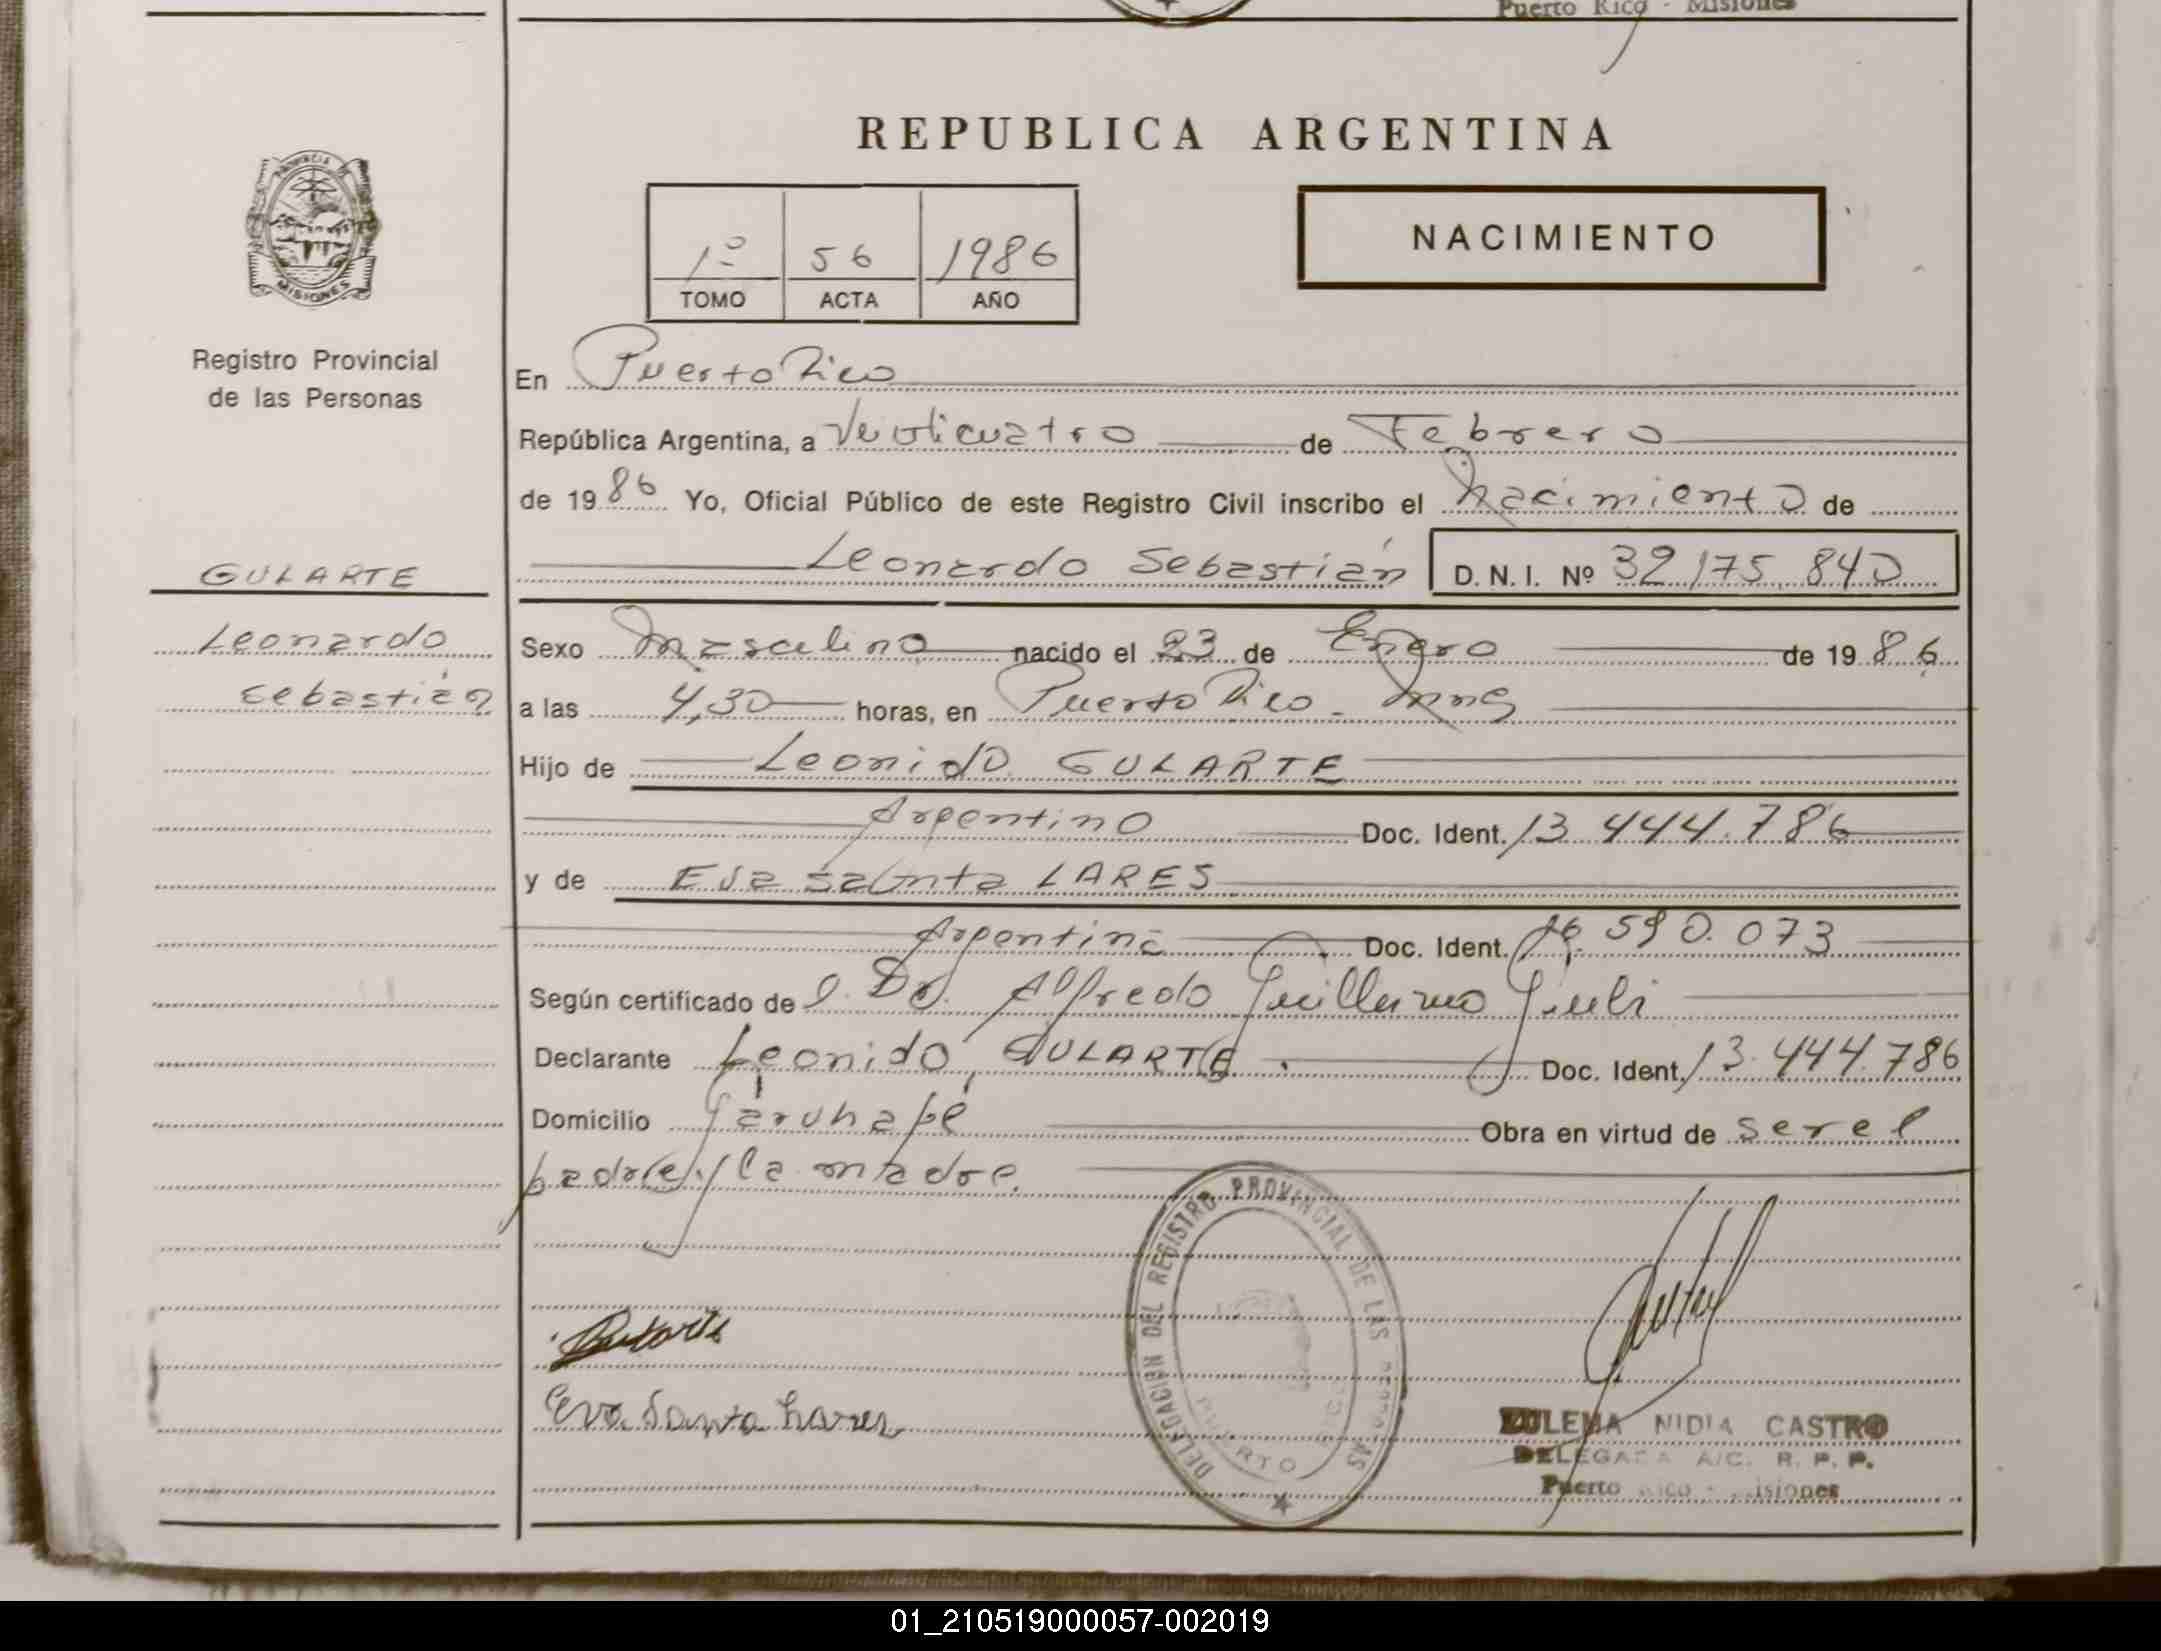 Puerto Rico - Misiones
REPUBLICA ARGENTINA
PROVINCIA DE MISIONES
1º 56 1986
TOMO ACTA AÑO
NACIMIENTO
Registro Provincial
de las Personas
En Puerto Rico
República Argentina, a Veinticuatro de Febrero
de 1986 Yo, Oficial Público de este Registro Civil inscribo el Nacimiento de
Leonardo Sebastián D. N. I. Nº 32.175.840
GULARTE
Leonardo
Sebastián
Sexo Masculino nacido el 23 de Enero de 1986
a las 4,30 horas, en Puerto Rico - Mnes
Hijo de Leonido GULARTE
Argentino Doc. Ident. 13.444.786
y de Eva Santa LARES
Argentina Doc. Ident. 16.590.073
Según certificado de Dr. Alfredo Guillermo
Declarante Leonido GULARTE. Doc. Ident. 13.444.786
Domicilio Garuhapé Obra en virtud de ser el
padre y la madre.
Gularte
Eva Santa Lares
DELEGACION DEL REGISTRO PROVINCIAL DE LAS PERSONAS
PUERTO RICO
ZULEMA NIDIA CASTRO
DELEGADA A/C. R. P. P.
Puerto Rico - Misiones
01_210519000057-002019